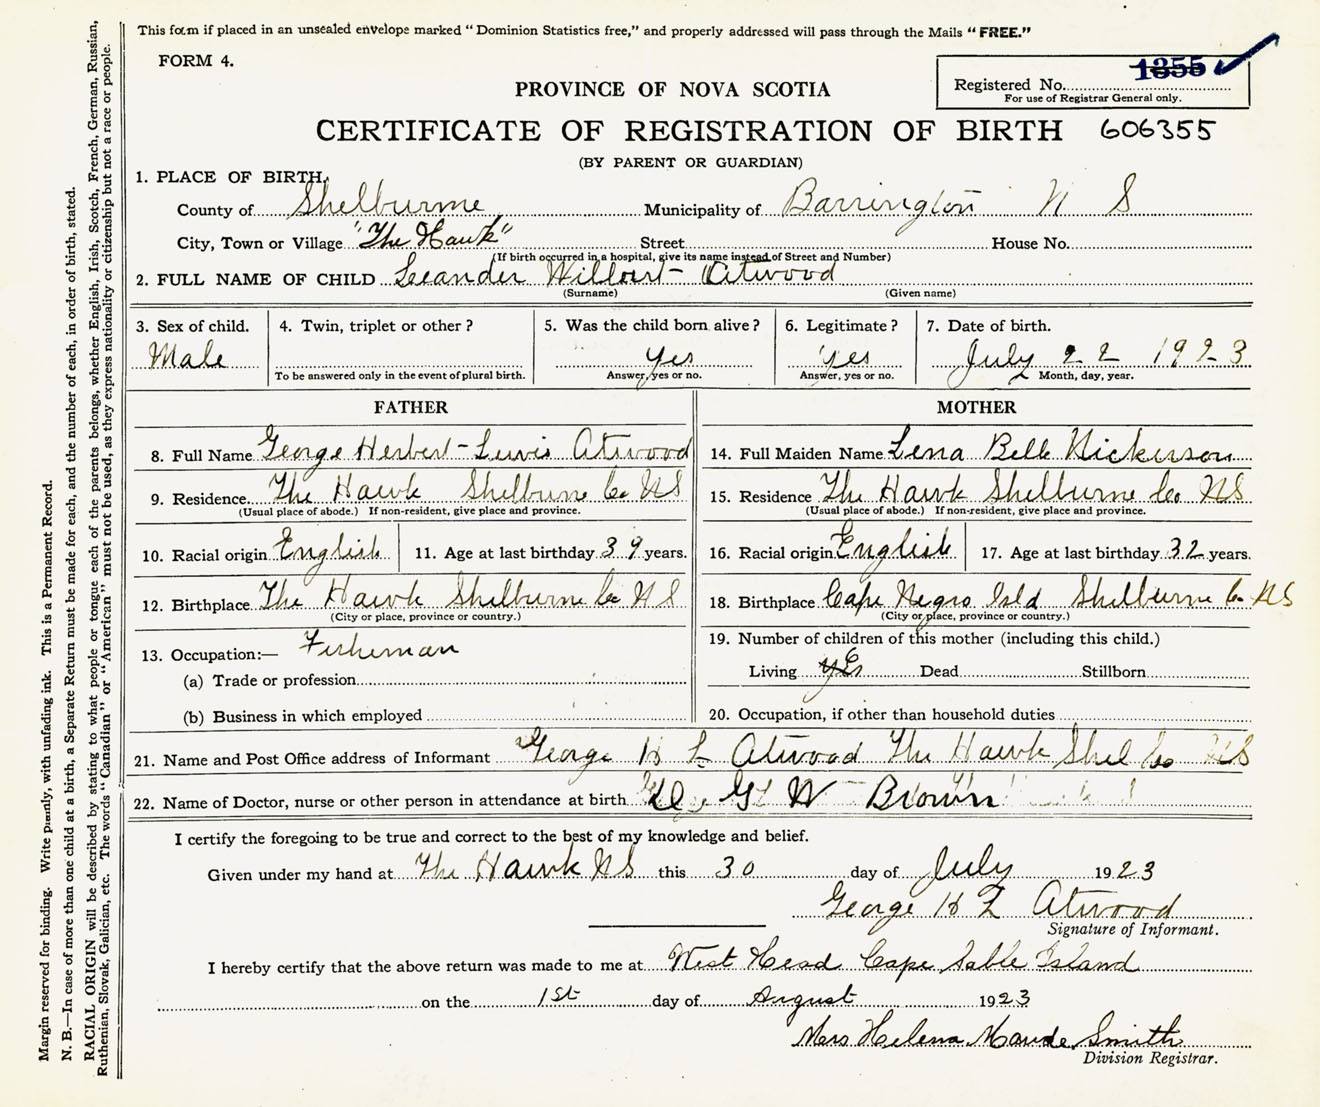 This form if placed in an unsealed envelope marked "Dominion Statistics free," and properly addressed will pass through the Mails "FREE."
FORM 4.
1355
Registered No.
For use of Registrar General only.
PROVINCE OF NOVA SCOTIA
CERTIFICATE OF REGISTRATION OF BIRTH 606355
(BY PARENT OR GUARDIAN)
1. PLACE OF BIRTH.
County of Shelburne Municipality of Barrington N S
City, Town or Village "The Hawk" Street House No.
(If birth occurred in a hospital, give its name instead of Street and Number)
2. FULL NAME OF CHILD Leander Wilbert - Atwood
(Surname) (Given name)
3. Sex of child. 4. Twin, triplet or other? 5. Was the child born alive? 6. Legitimate? 7. Date of birth.
Male Yes Yes July 22 1923
To be answered only in the event of plural birth. Answer, yes or no. Answer, yes or no. Month, day, year.
FATHER MOTHER
8. Full Name George Herbert-Lewis Atwood 14. Full Maiden Name Lena Belle Nickerson
9. Residence The Hawk Shelburne Co NS 15. Residence The Hawk Shelburne Co NS
(Usual place of abode.) If non-resident, give place and province. (Usual place of abode.) If non-resident, give place and province.
10. Racial origin English 11. Age at last birthday 39 years. 16. Racial origin English 17. Age at last birthday 32 years.
12. Birthplace The Hawk Shelburne Co NS 18. Birthplace Cape Negro Isld Shelburne Co NS
(City or place, province or country.) (City or place, province or country.)
13. Occupation:— Fisherman 19. Number of children of this mother (including this child.)
Living yEs Dead Stillborn
(a) Trade or profession
(b) Business in which employed 20. Occupation, if other than household duties
21. Name and Post Office address of Informant George H L Atwood The Hawk Shel Co NS
22. Name of Doctor, nurse or other person in attendance at birth G W Brown
I certify the foregoing to be true and correct to the best of my knowledge and belief.
Given under my hand at The Hawk NS this 30 day of July 1923
George H L Atwood
Signature of Informant.
I hereby certify that the above return was made to me at West Head Cape Sable Island
on the 1st day of August 1923
Mrs Helena Maude Smith
Division Registrar.
Margin reserved for binding. Write plainly, with unfading ink. This is a Permanent Record.
N. B.—In case of more than one child at a birth, a Separate Return must be made for each, and the number of each, in order of birth, stated.
RACIAL ORIGIN will be described by stating to what people or tongue each of the parents belongs, whether English, Irish, Scotch, French, German, Russian,
Ruthenian, Slovak, Galician, etc. The words "Canadian" or "American" must not be used, as they express nationality or citizenship but not a race or people.